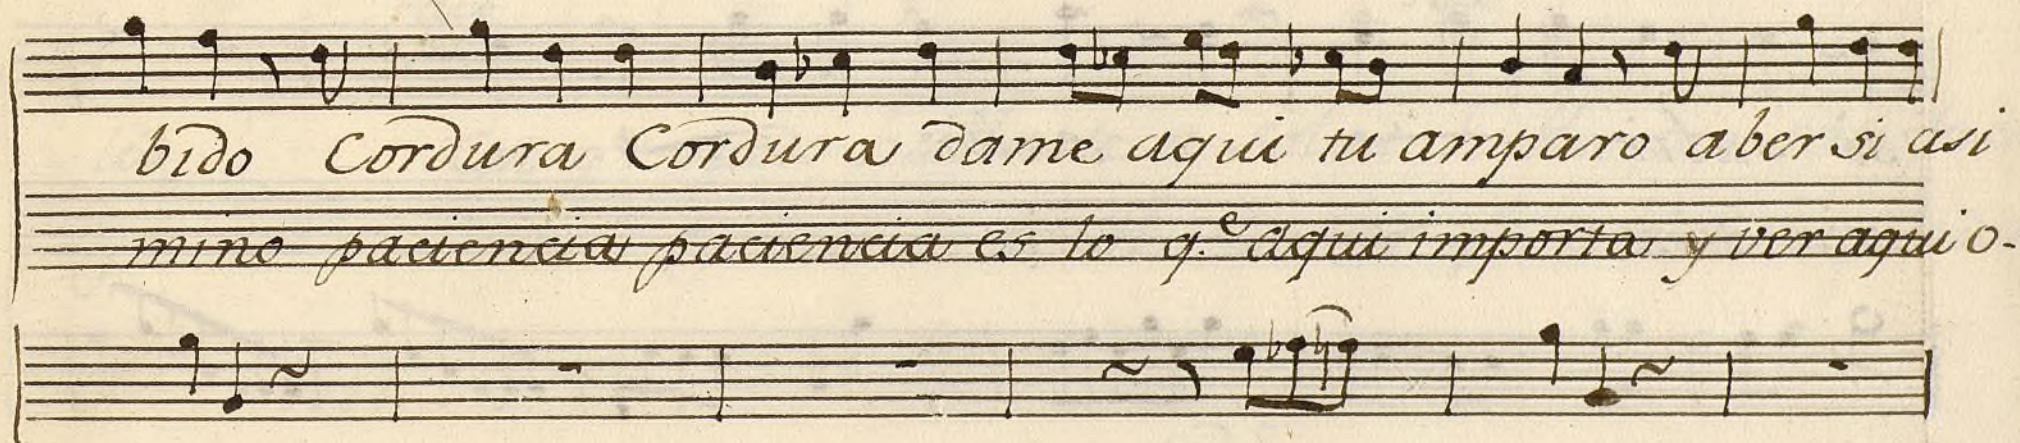 bido Cordura Cordura dame aqui tu amparo aber si asi
mino paciencia paciencia es lo q.e aqui importa y ver aqui o-